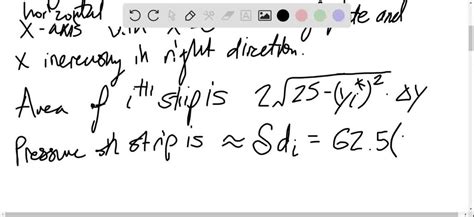 horizontal te and
x-axis
x increasing in right direction.
Area of iᵗʰ strip is 2√25-(yᵢ*)² · Δy
Pressure strip is ≈ δdᵢ = 62.5(